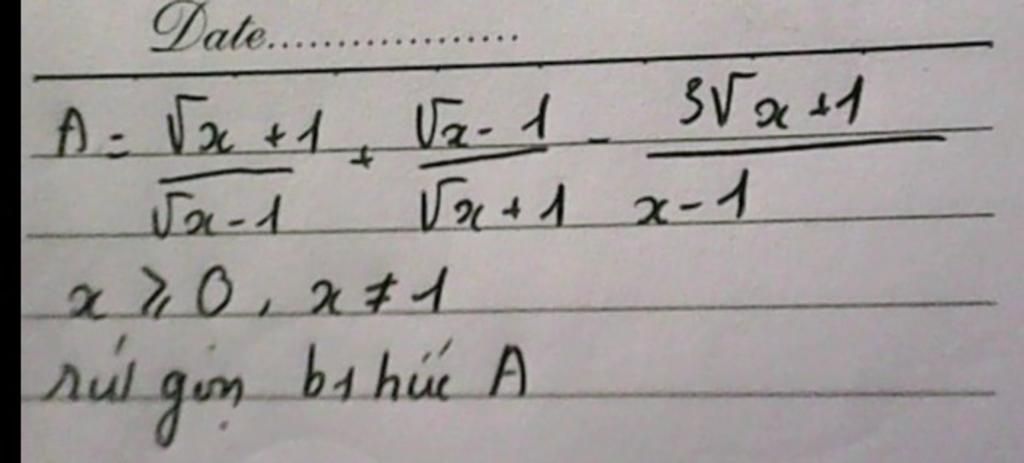 Date..................
A = √x + 1 / √x - 1 + √x - 1 / √x + 1 - 3√x + 1 / x - 1
x ⩾ 0, x ≠ 1
rút gọn bthức A